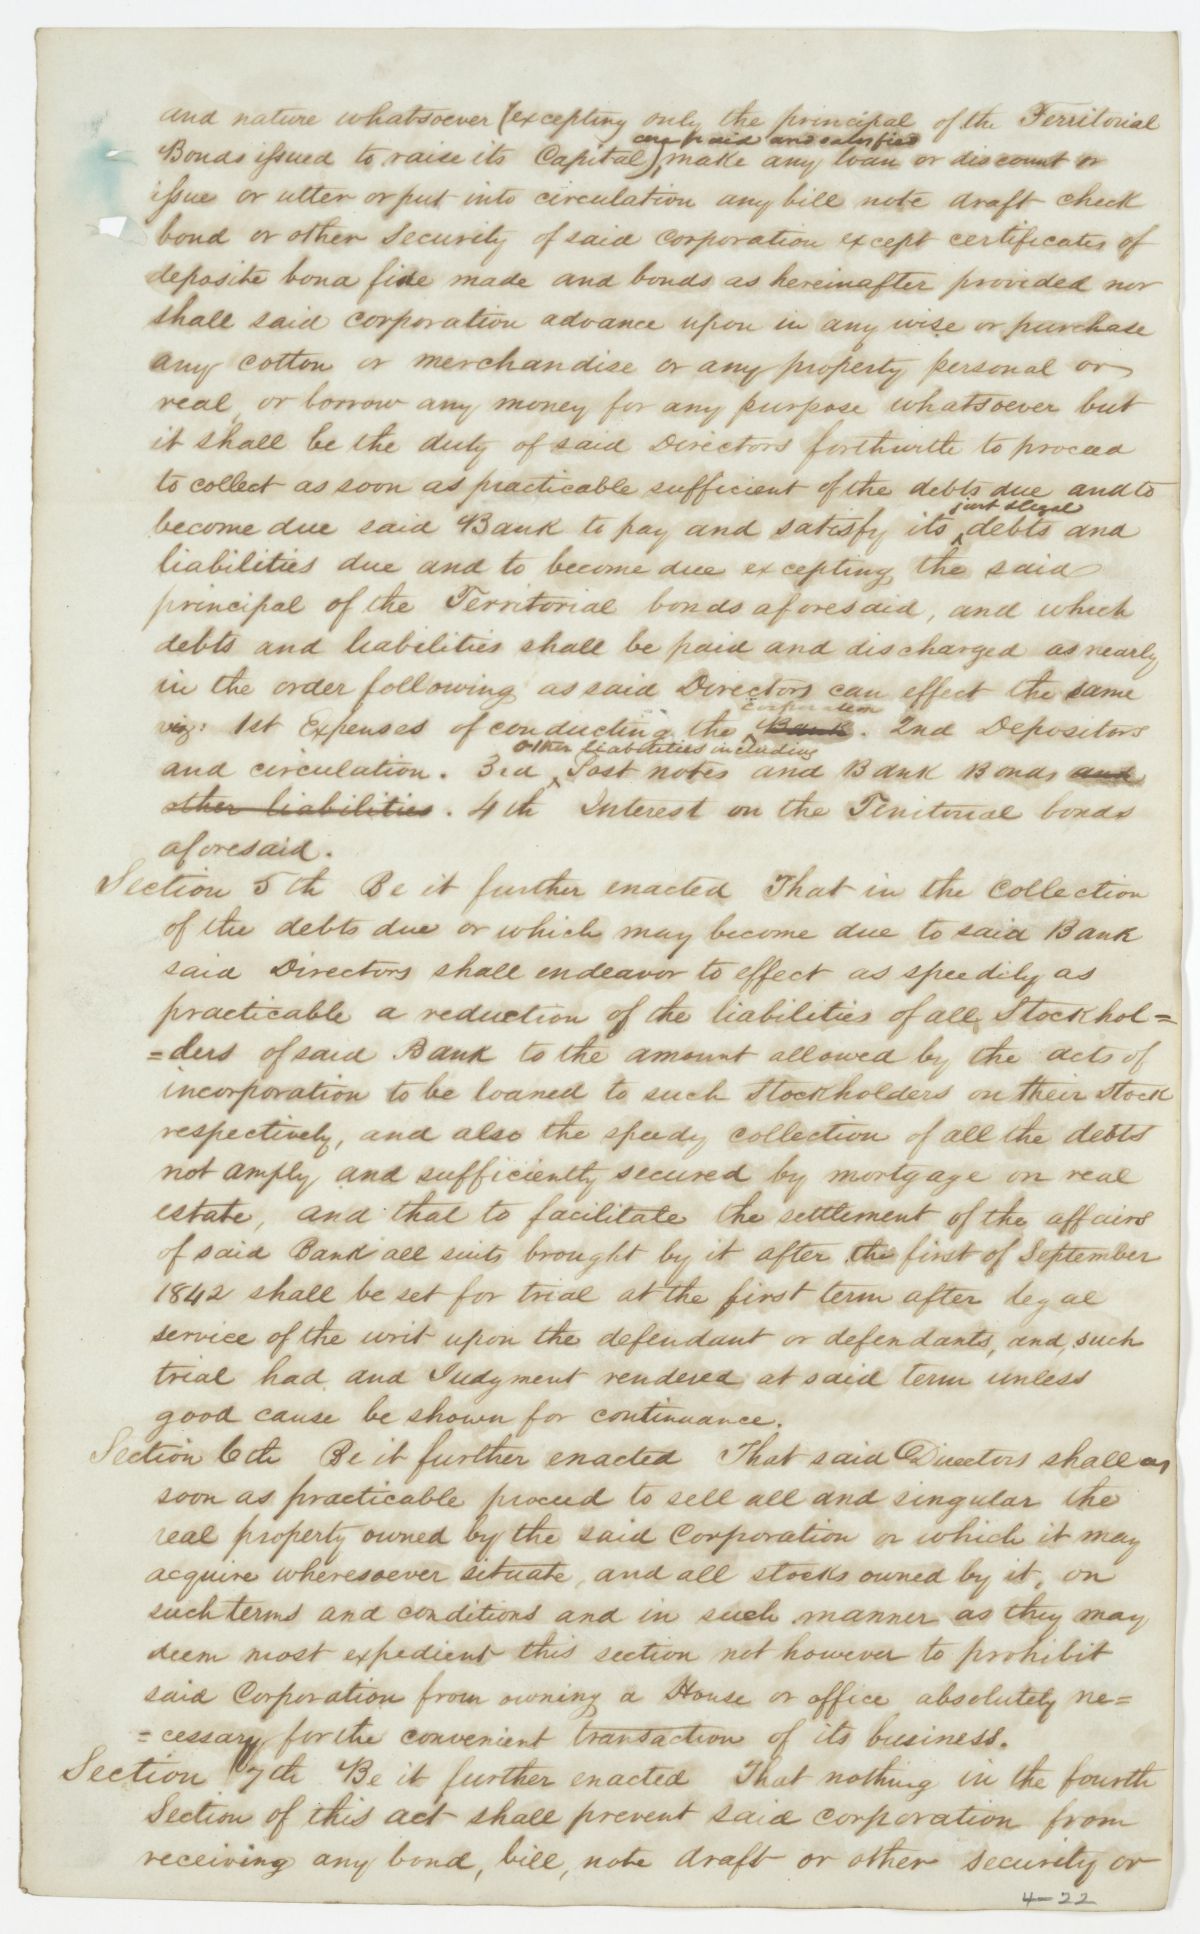 and nature whatsoever (excepting only the principal of the Territorial
are paid and satisfied
Bonds issued to raise its Capital), make any loan or discount or
issue or utter or put into circulation any bill note draft check
bond or other Security of said corporation except certificates of
deposite bona fide made and bonds as hereinafter provided nor
shall said corporation advance upon in any wise or purchase
any cotton or merchandise or any property personal or
real or borrow any money for any purpose whatsoever but
it shall be the duty of said Directors forthwith to proceed
to collect as soon as practicable sufficient of the debts due and to
just & legal
become due said Bank to pay and satisfy its ‸ debts and
liabilities due and to become due excepting the said
principal of the Territorial bonds aforesaid, and which
debts and liabilities shall be paid and discharged as nearly
in the order following as said Directors can effect the same
corporation
viz: 1st Expenses of conducting the ‸ Bank. 2nd Depositors
other liabilities including
and circulation. 3rd ‸ Post notes and Bank Bonds and
other liabilities. 4th Interest on the Teritorial bonds
aforesaid.
Section 5th Be it further enacted That in the collection
of the debts due or which may become due to said Bank
said Directors shall endeavor to effect as speedily as
practicable a reduction of the liabilities of all Stockhol=
=ders of said Bank to the amount allowed by the acts of
incorporation to be loaned to such Stockholders on their Stock
respectively, and also the speedy collection of all the debts
not amply and sufficiently secured by mortgage on real
estate, and that to facilitate the settlement of the affairs
of said Bank all suits brought by it after the first of September
1842 shall be set for trial at the first term after legal
service of the writ upon the defendant or defendants, and such
trial had and Judgment rendered at said term unless
good cause be shown for continuance.
Section 6th Be it further enacted That said Directors shall as
soon as practicable proceed to sell all and singular the
real property owned by the said Corporation or which it may
acquire wheresoever situate, and all stocks owned by it, on
such terms and conditions and in such manner as they may
deem most expedient this section not however to prohibit
said Corporation from owning a House or office absolutely ne=
=cessary for the convenient transaction of its business.
Section 7th Be it further enacted That nothing in the fourth
Section of this act shall prevent said corporation from
receiving any bond, bill, note draft or other security or
4-22